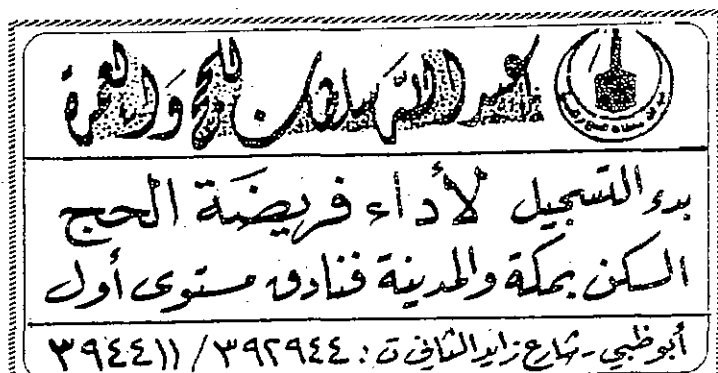 عبد الله سلمان للحج والعمرة
بدء التسجيل لأداء فريضة الحج
السكن بمكة والمدينة فنادق مستوى أول
أبوظبي - شارع زايد الثاني ت : ٣٩٢٩٤٤ / ٣٩٤٤١١